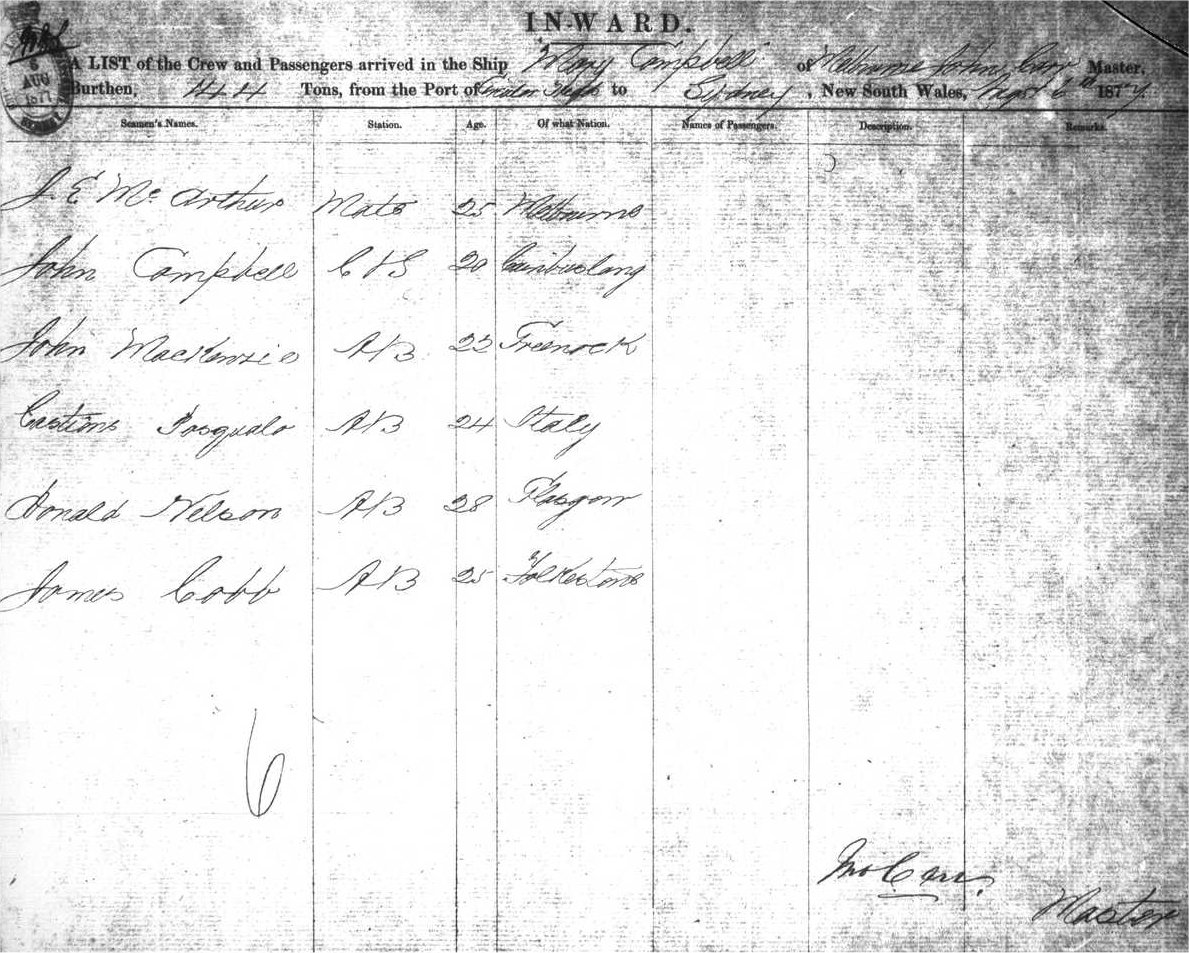 INWARD.
6
AUG
1877
A LIST of the Crew and Passengers arrived in the Ship Mary Campbell of Melbourne John Carr Master,
Burthen, 144 Tons, from the Port of to Sydney, New South Wales, 6th 1877
Seamen's Names. Station. Age. Of what Nation. Names of Passengers. Description. Remarks.
J. E Mc Arthur Mate 25 Melbourne
John Campbell C & S 20 Cambuslang
John MacKenzie AB 22 Greenock
Pasquale AB 24 Italy
Donald Nelson AB 28 Glasgow
James Cobb AB 25 Folkestone
6
Jno Carr.
Master